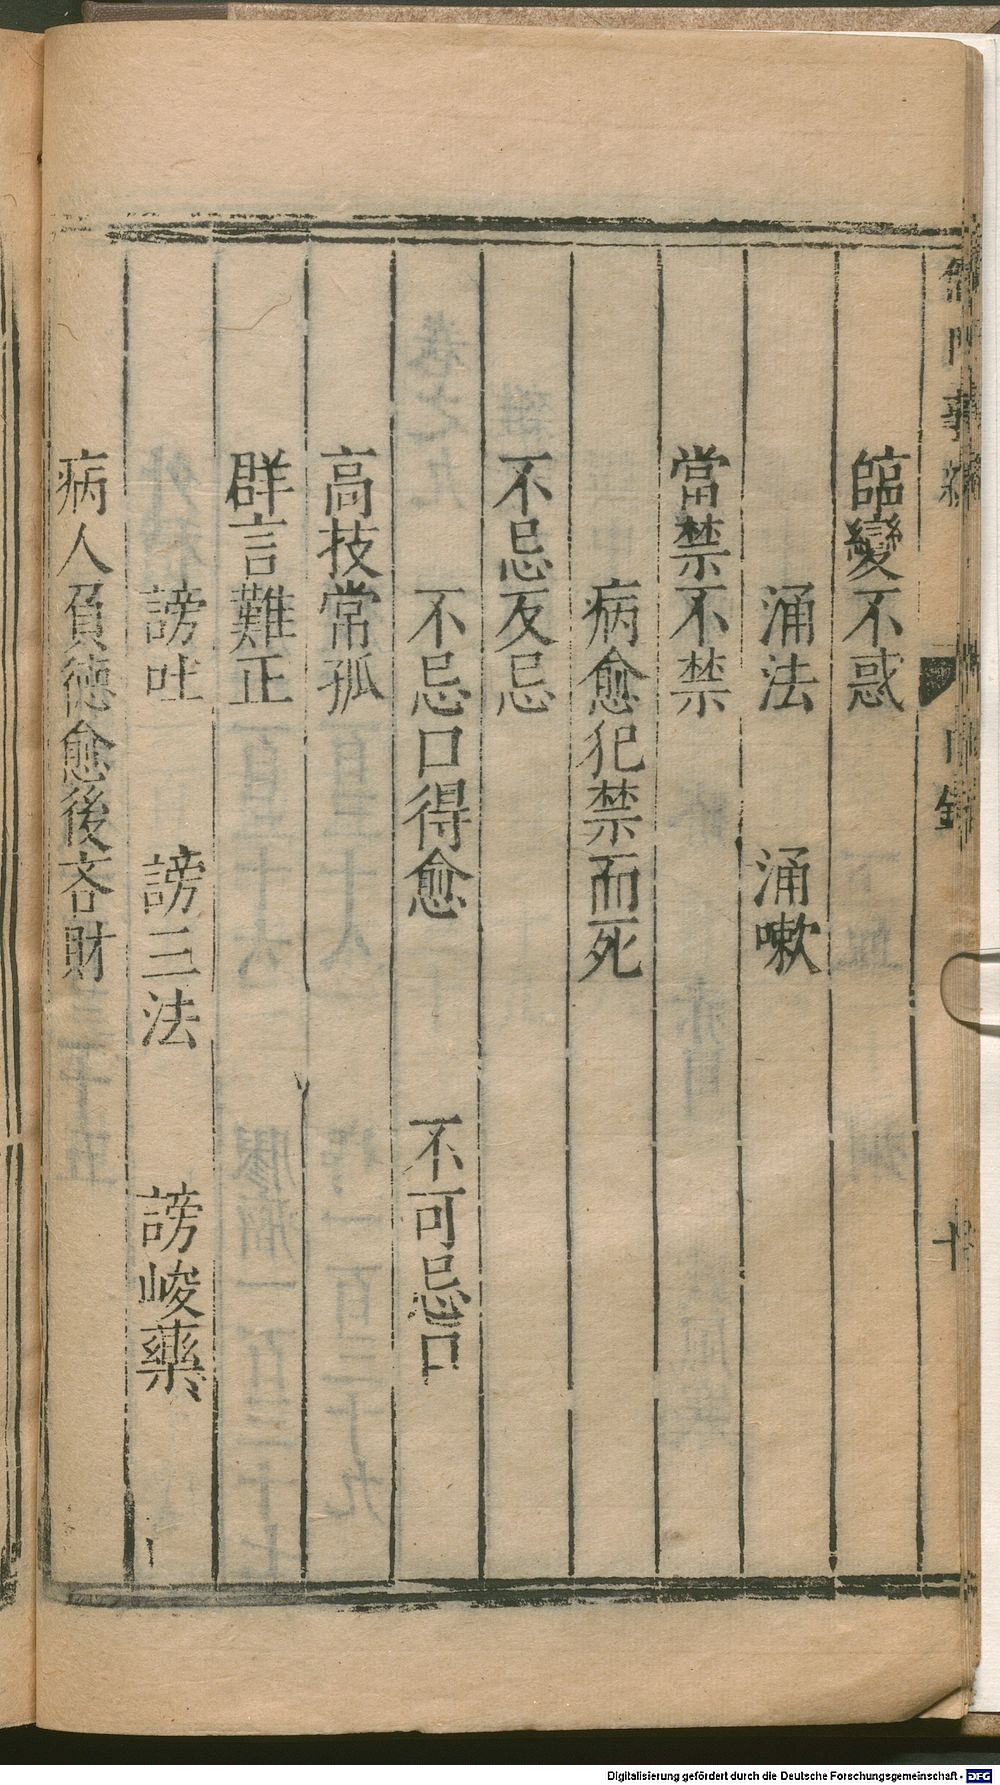 儒門事親
目錄
臨變不惑
涌法　涌嗽
當禁不禁
病愈犯禁而死
不忌反忌
不忌口得愈　不可忌口
高技常孤
群言難正
謗吐　謗三法　謗峻藥
病人負德愈後吝財
Digitalisierung gefördert durch die Deutsche Forschungsgemeinschaft - DFG